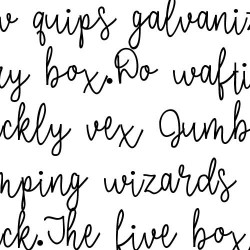 w quips galvaniz
ry box.Do wafti
ckly vex Jumb
mping wizards
ck.The five box